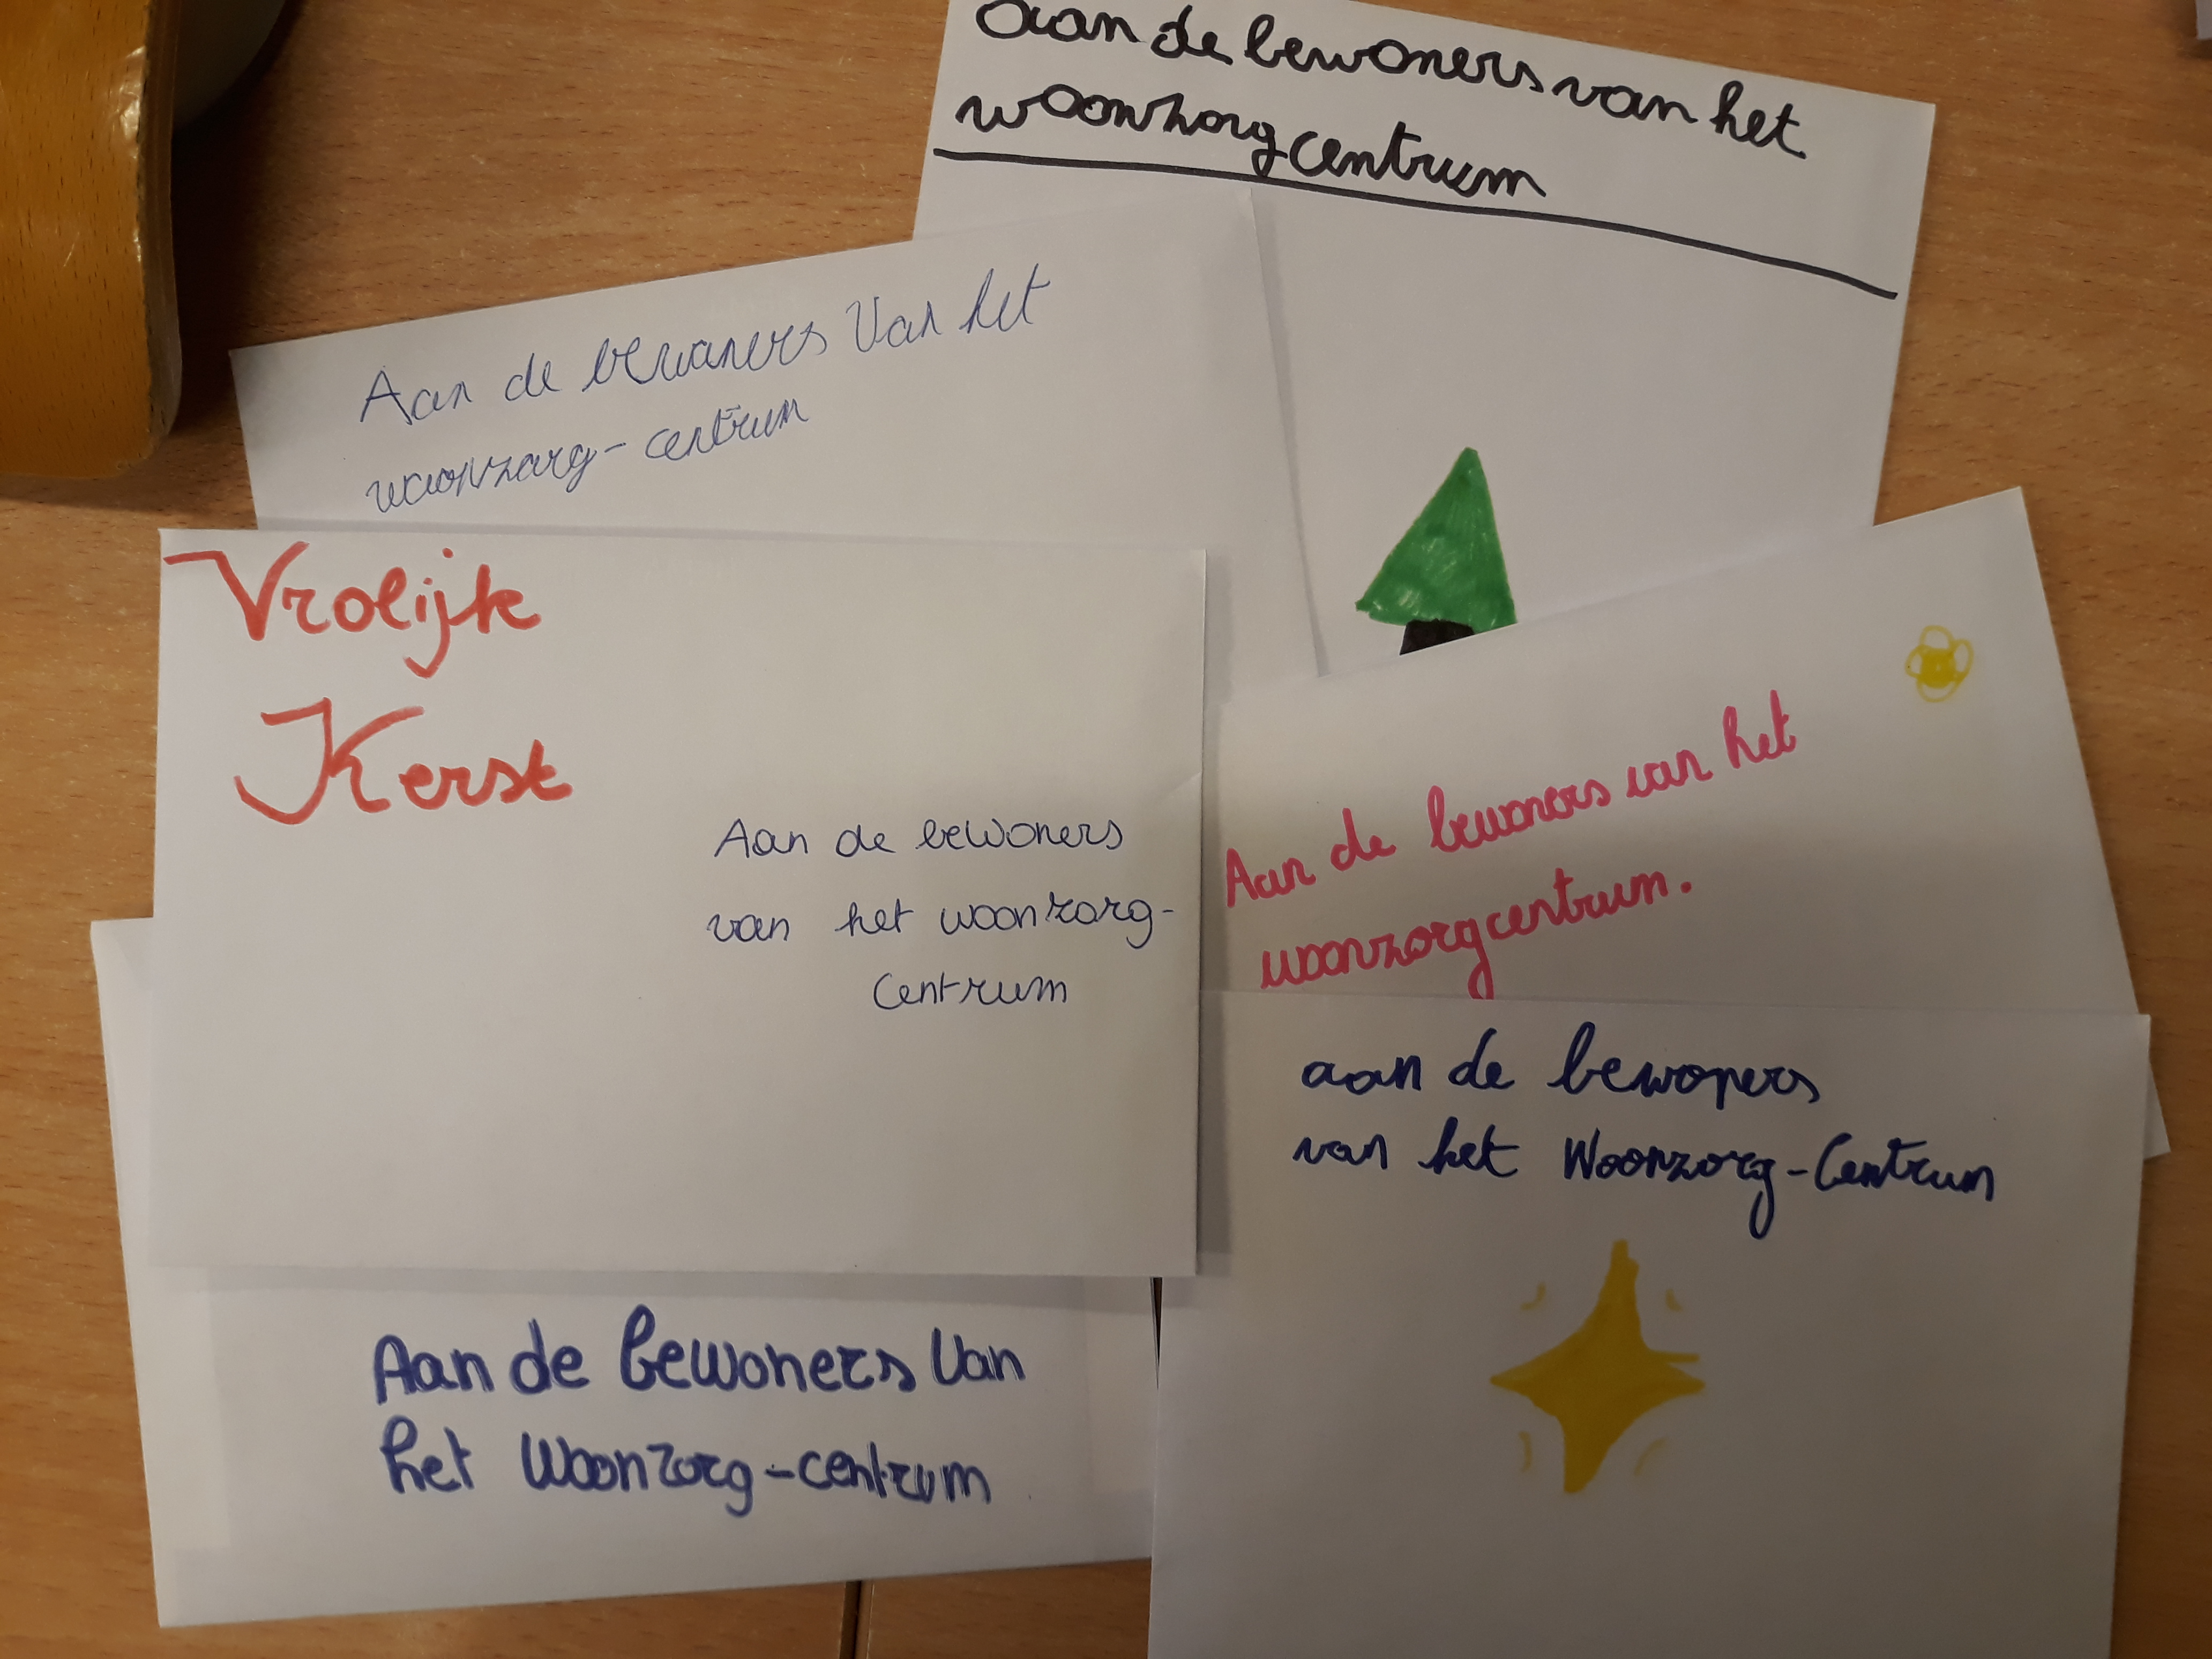 aan de bewoners van het
woonzorgcentrum
Aan de bewoners Van het
woonzorg-centrum
Vrolijk
Kerst
Aan de bewoners
van het woonzorg-
centrum
Aan de bewoners van het
woonzorgcentrum.
aan de bewoners
van het Woonzorg-Centrum
Aan de bewoners Van
het Woonzorg-centrum